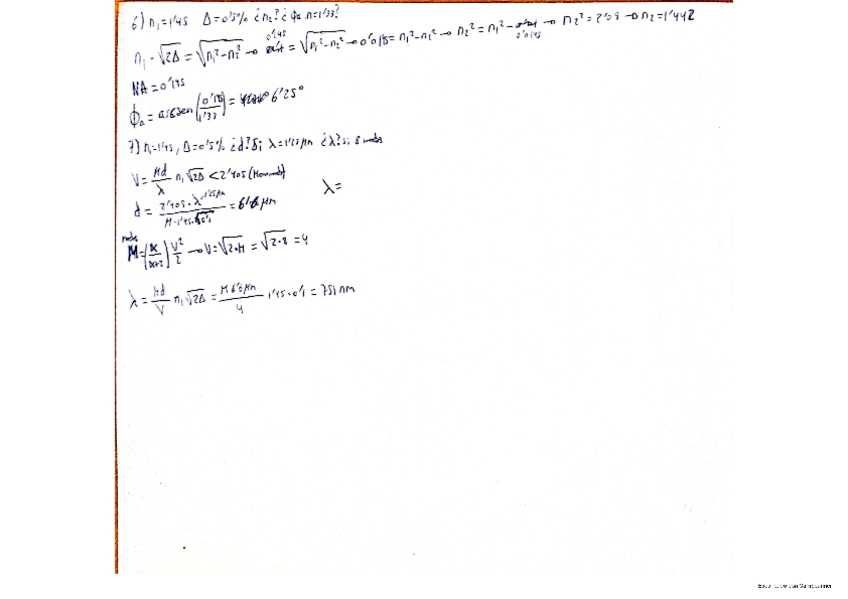 6) n₁=1'45 Δ=0'5% ¿n₂? ¿ϕa n=1'33?
n₁·√2Δ = √n₁²-n₂² → 0'145 = √n₁²-n₂² → 0'018= n₁²-n₂² → n₂² = n₁²- 0'0145 → n₂²=2'08 → n₂=1'442
NA=0'145
ϕa= arcsen(0'15/1'33)= 6'25°
7) n₁=1'45, Δ=0'5% ¿d? Si λ=1'25μm ¿λ? si 8 modos
V= πd/λ n₁√2Δ <2'405 (Monomodo)
d= 2'405·λ 1'25μm / π·1'45·√0'01 = 6'6 μm λ=
modos
M=(α/α+2) V²/2 → V=√2·M = √2·8 = 4
λ= πd/V n₁√2Δ = π 6'6μm/4 1'45·0'1 = 751 nm